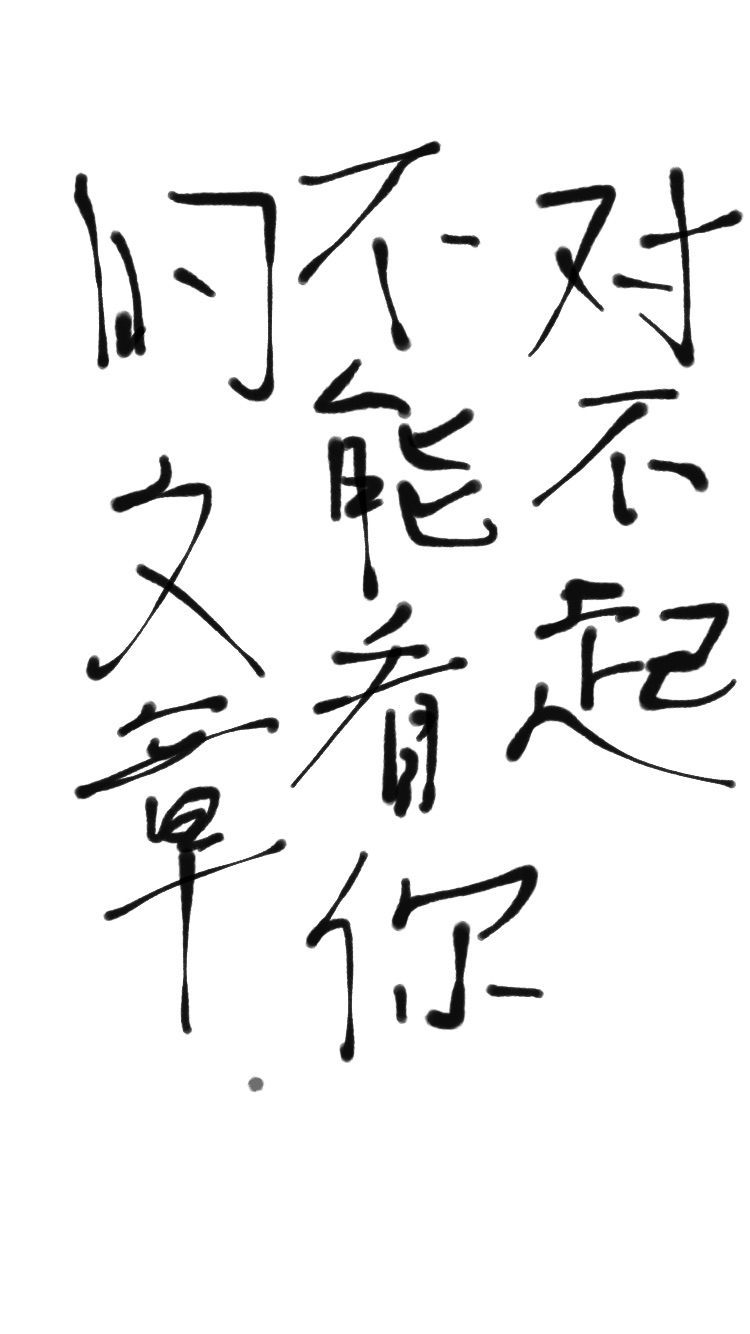 对不起
不能看你
的文章